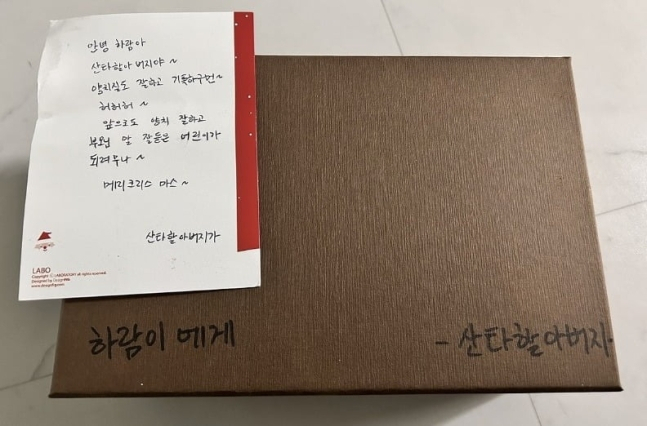 안녕 하람아
산타할아버지야~
양치질도 잘하고 기특하구먼~
허허허~
앞으로도 양치 잘하고
부모님 말 잘듣는 어린이가
되려무나~
메리크리스마스~
산타할아버지가
LABO
하람이에게
- 산타할아버지